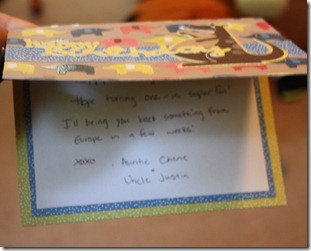 happy
Hope turning one is super fun!
I'll bring you back something from
Europe in a few weeks!
xoxo, Auntie Cherie
Uncle Justin